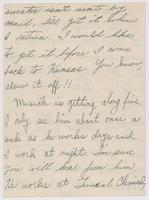 sweater isn't sent by
mail, I'll get it when
I return. I would like
to get it before I come
back to Kansas. You know,
show it off!!
Munich is getting along fine.
I only see him about once a
wk as he works days and
I work at night. I'm sure
you will hear from him.
He works at General Chemistry